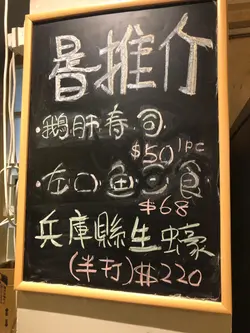 推介
·鵝肝壽司
$50 1PC
·左口鱼 食
$68
兵庫縣生蠔
(半打)$220